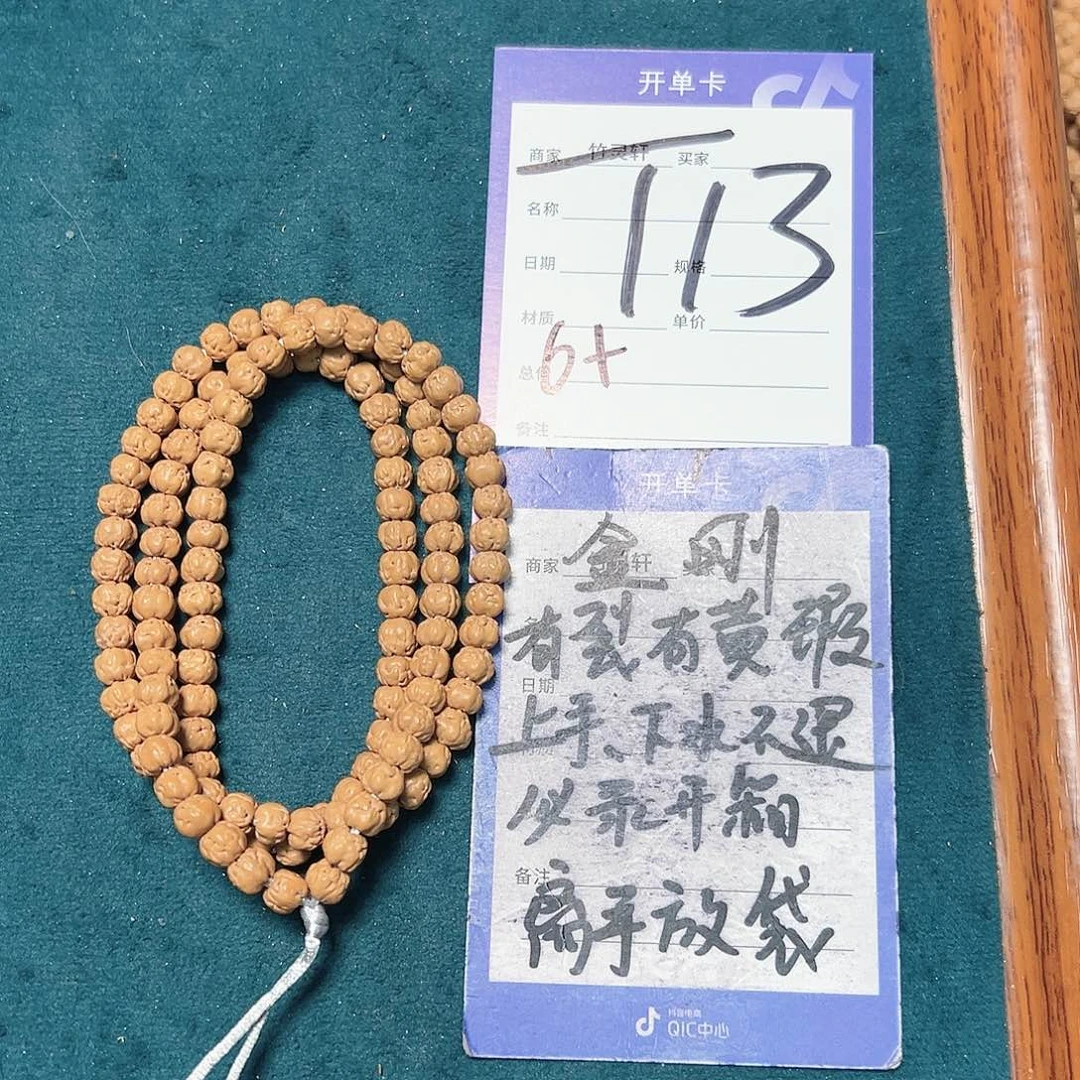 开单卡
商家 竹灵轩 买家
名称
T113
日期 规格
材质 单价
6+
备注
开单卡
金刚
商家 轩
有裂有黄瑕
日期
上手、下水不退
必录开箱
备注
离手放袋
抖音电商
QIC中心